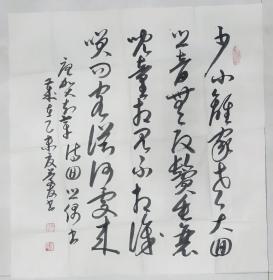 少小離家老大回
乡音無改鬢毛衰
兒童相見不相識
笑问客從何處来
唐賀知章詩回乡偶書